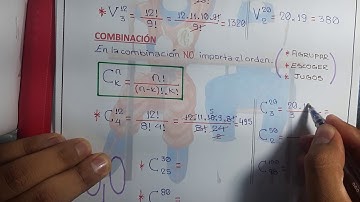 * V₃¹² = 12!/9! = 12.11.10.9!/9! = 1320
V₂²⁰ = 20.19 = 380
COMBINACIÓN
En la combinación NO importa el orden.
* AGRUPAR
* ESCOGER
* JUGOS
Cₖⁿ = n!/(n-k)!.k!
* C₄¹² = 12!/8!.4! = 12.11.10.9.8!/8!.24 = 495
C₃²⁰ = 20.1
* C₂₅³⁰ =
C₂⁵⁰ =